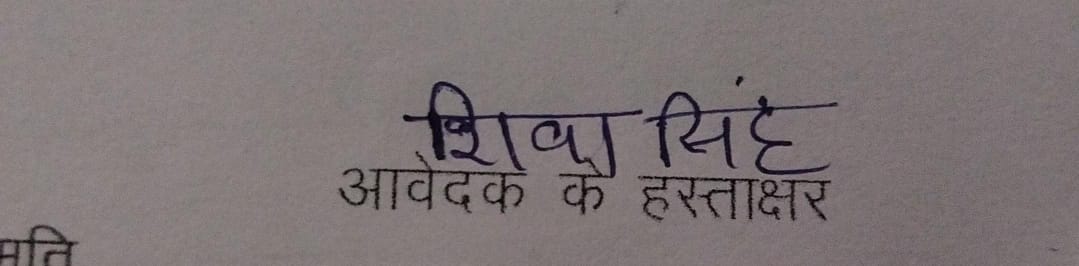 शिवा सिंह
आवेदक के हस्ताक्षर
मति